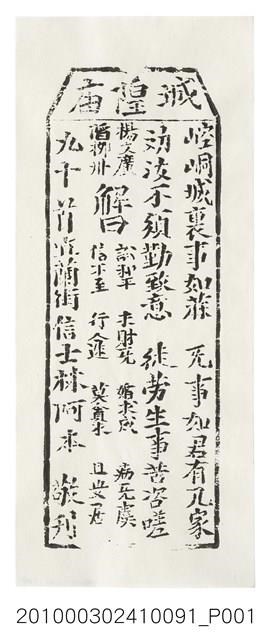 城隍庙
崆峒城裏事如蔴 无事如君有几家
劝汝不須勤致意 徒劳生事苦咨嗟
楊文廣
陷柳州
解曰
訟和平 求財无 婚未成 病无虞
信不至 行人遠 莫貪求 且安居
九十首 宜蘭街信士林阿本 敬刊
201000302410091_P001